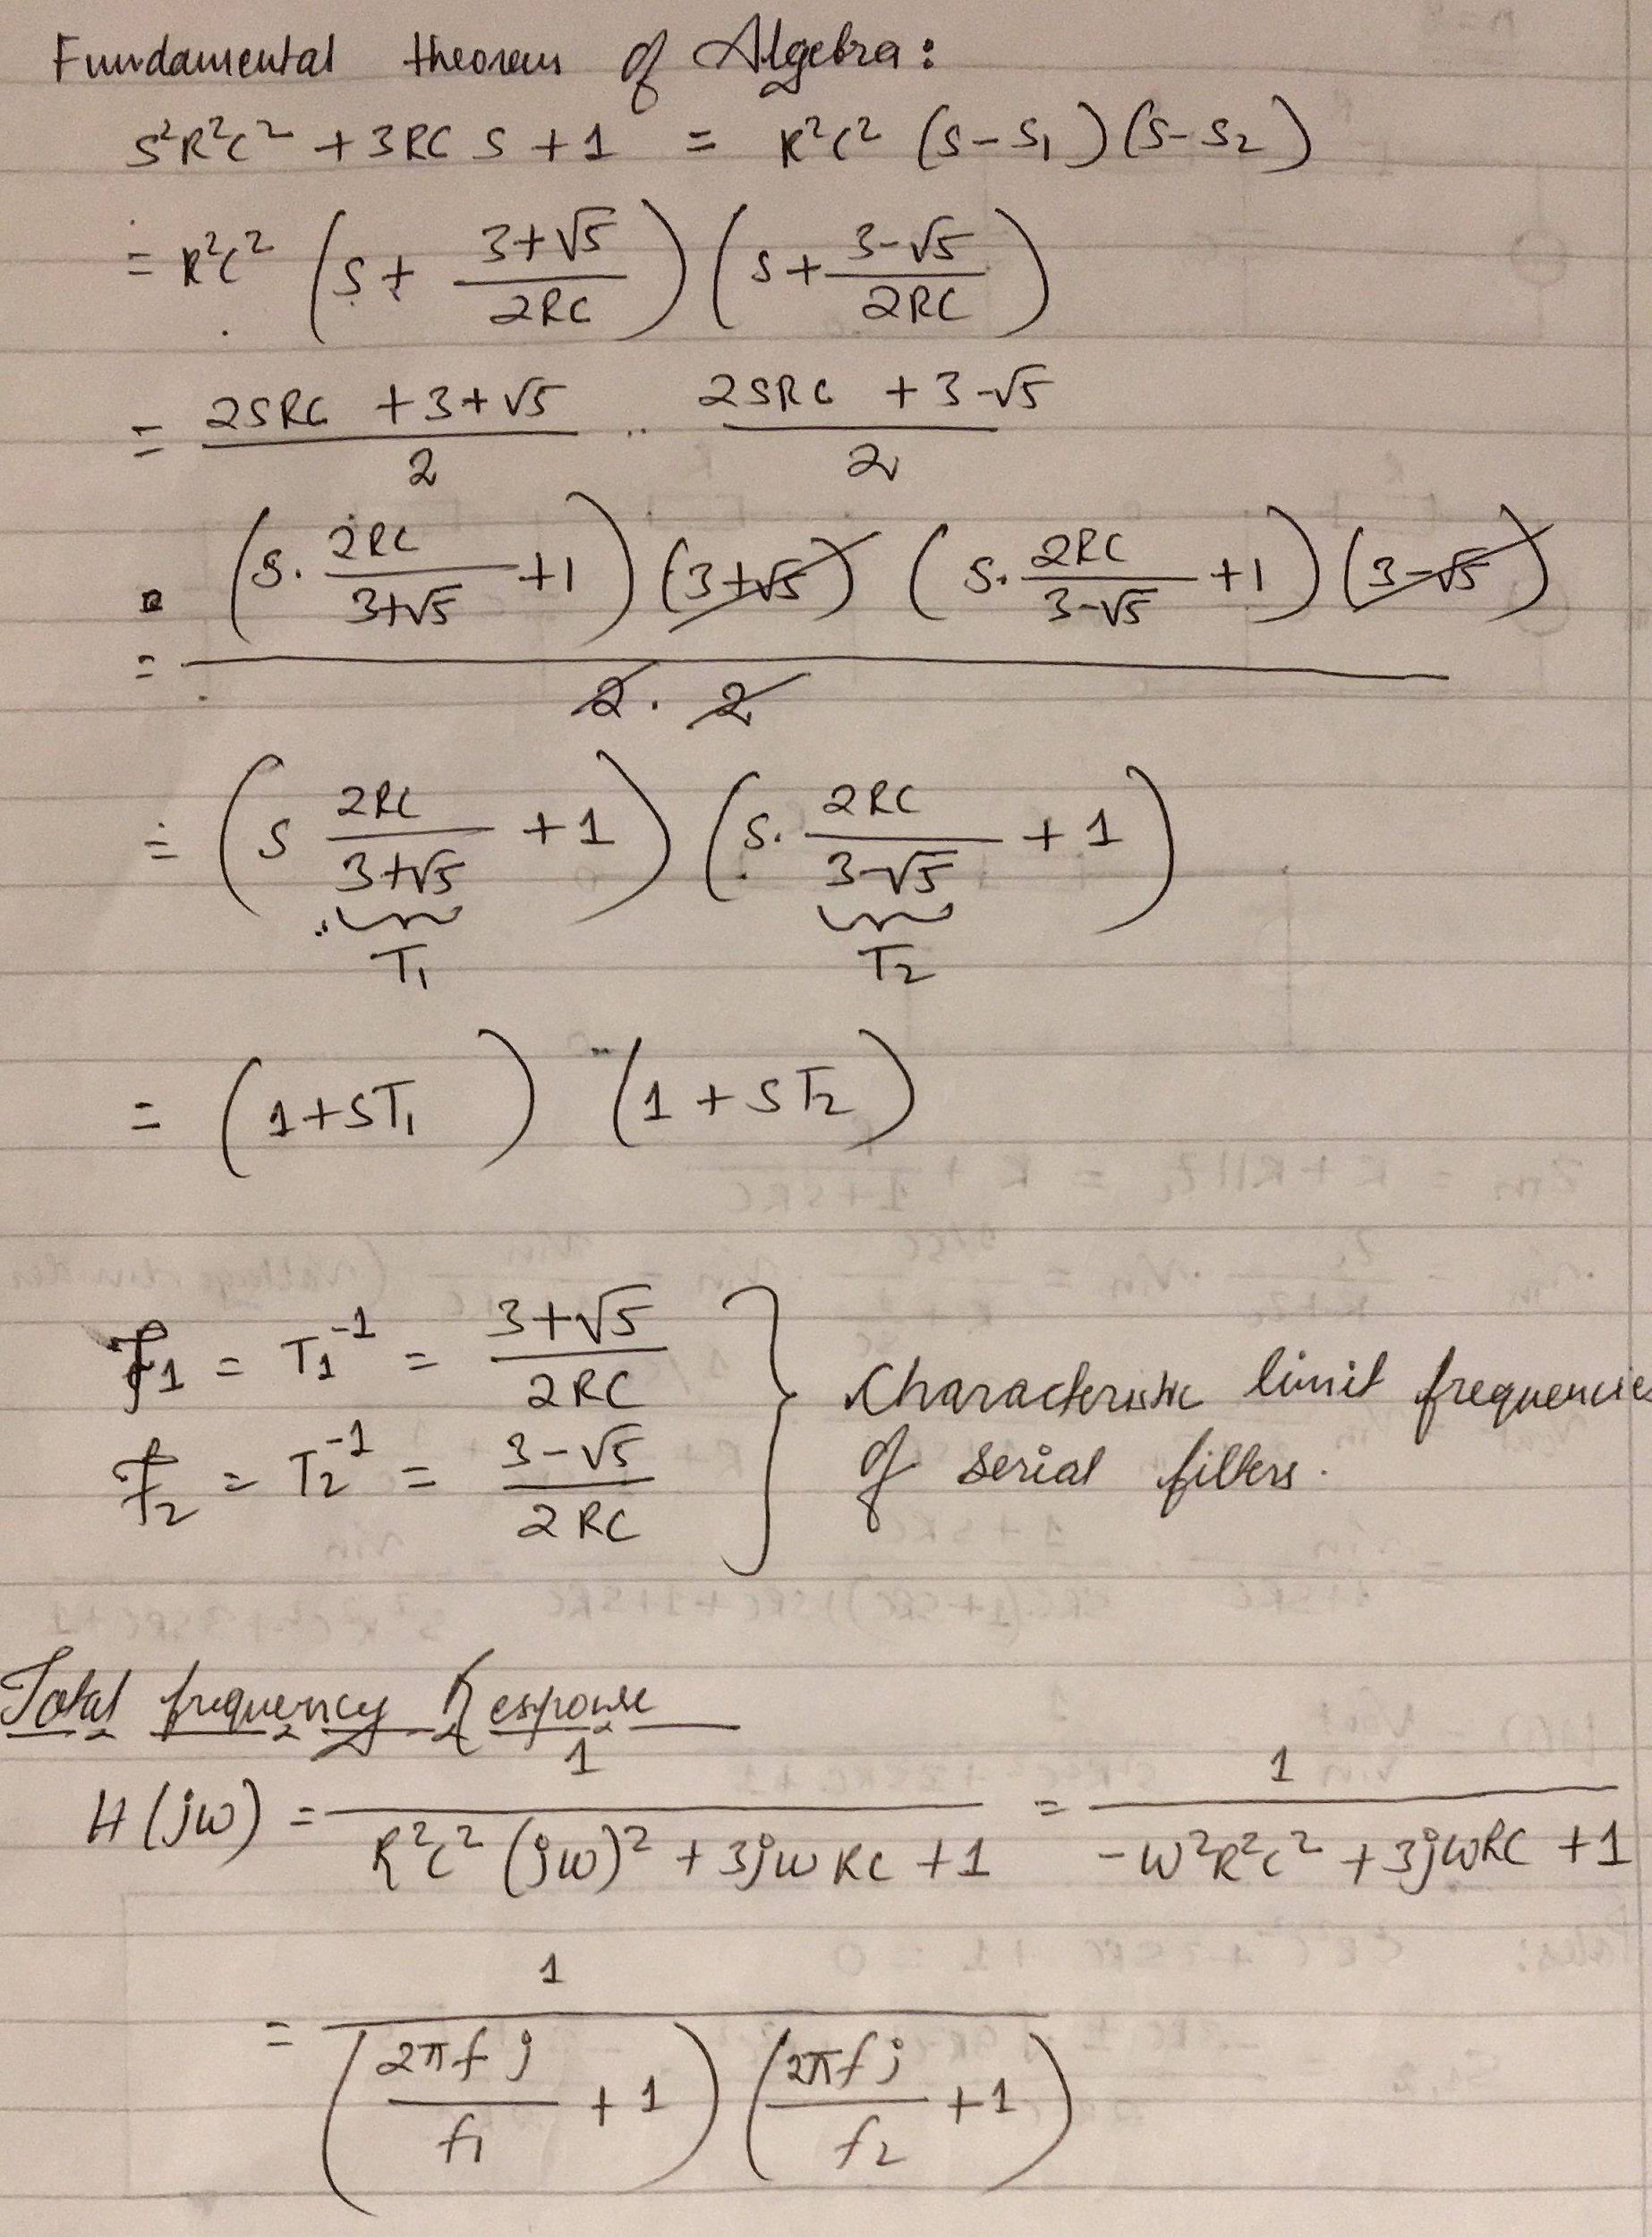 Fundamental theorem of Algebra:
s²R²C² + 3RC s + 1 = R²C² (s-s₁)(s-s₂)
= R²C² (s + (3+√5)/(2RC)) (s + (3-√5)/(2RC))
= (2sRC + 3+√5)/2 · (2sRC + 3-√5)/2
= (s. 2RC/(3+√5) + 1)(3+√5) (s. 2RC/(3-√5) + 1)(3-√5) / 2.2
= (s 2RC/(3+√5) + 1) (s. 2RC/(3-√5) + 1)
T₁ T₂
= (1+sT₁) (1+sT₂)
f₁ = T₁⁻¹ = (3+√5)/(2RC)
f₂ = T₂⁻¹ = (3-√5)/(2RC)
Characteristic limit frequencies
of serial filters.
Total frequency Response
H(jω) = 1/(R²C²(jω)² + 3jωRC + 1) = 1/(-ω²R²C² + 3jωRC + 1)
= 1/((2πfj/f₁ + 1)(2πfj/f₂ + 1))